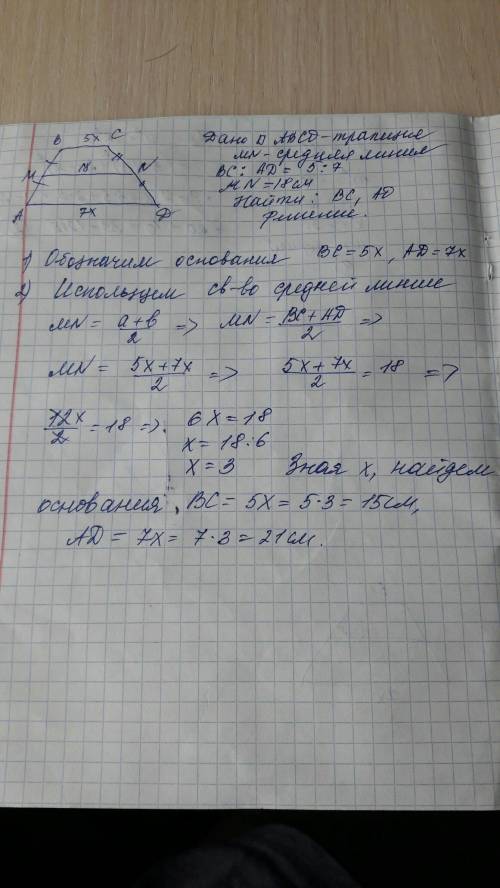 B 5x C
M 18 N
A 7x D
Дано ABCD-трапеция
MN-средняя линия
BC : AD = 5 : 7
MN = 18 см
Найти: BC, AD
Решение.
1) Обозначим основания BC = 5x, AD = 7x
2) Используем св-во средней линии
MN = a+b/2 => MN = BC + AD/2 =>
MN = 5x+7x/2 => 5x + 7x/2 = 18 =>
12x/2 = 18 => 6x = 18
x = 18:6
x = 3 Зная x, найдем
основания. BC = 5x = 5·3 = 15см,
AD = 7x = 7·3 = 21см.